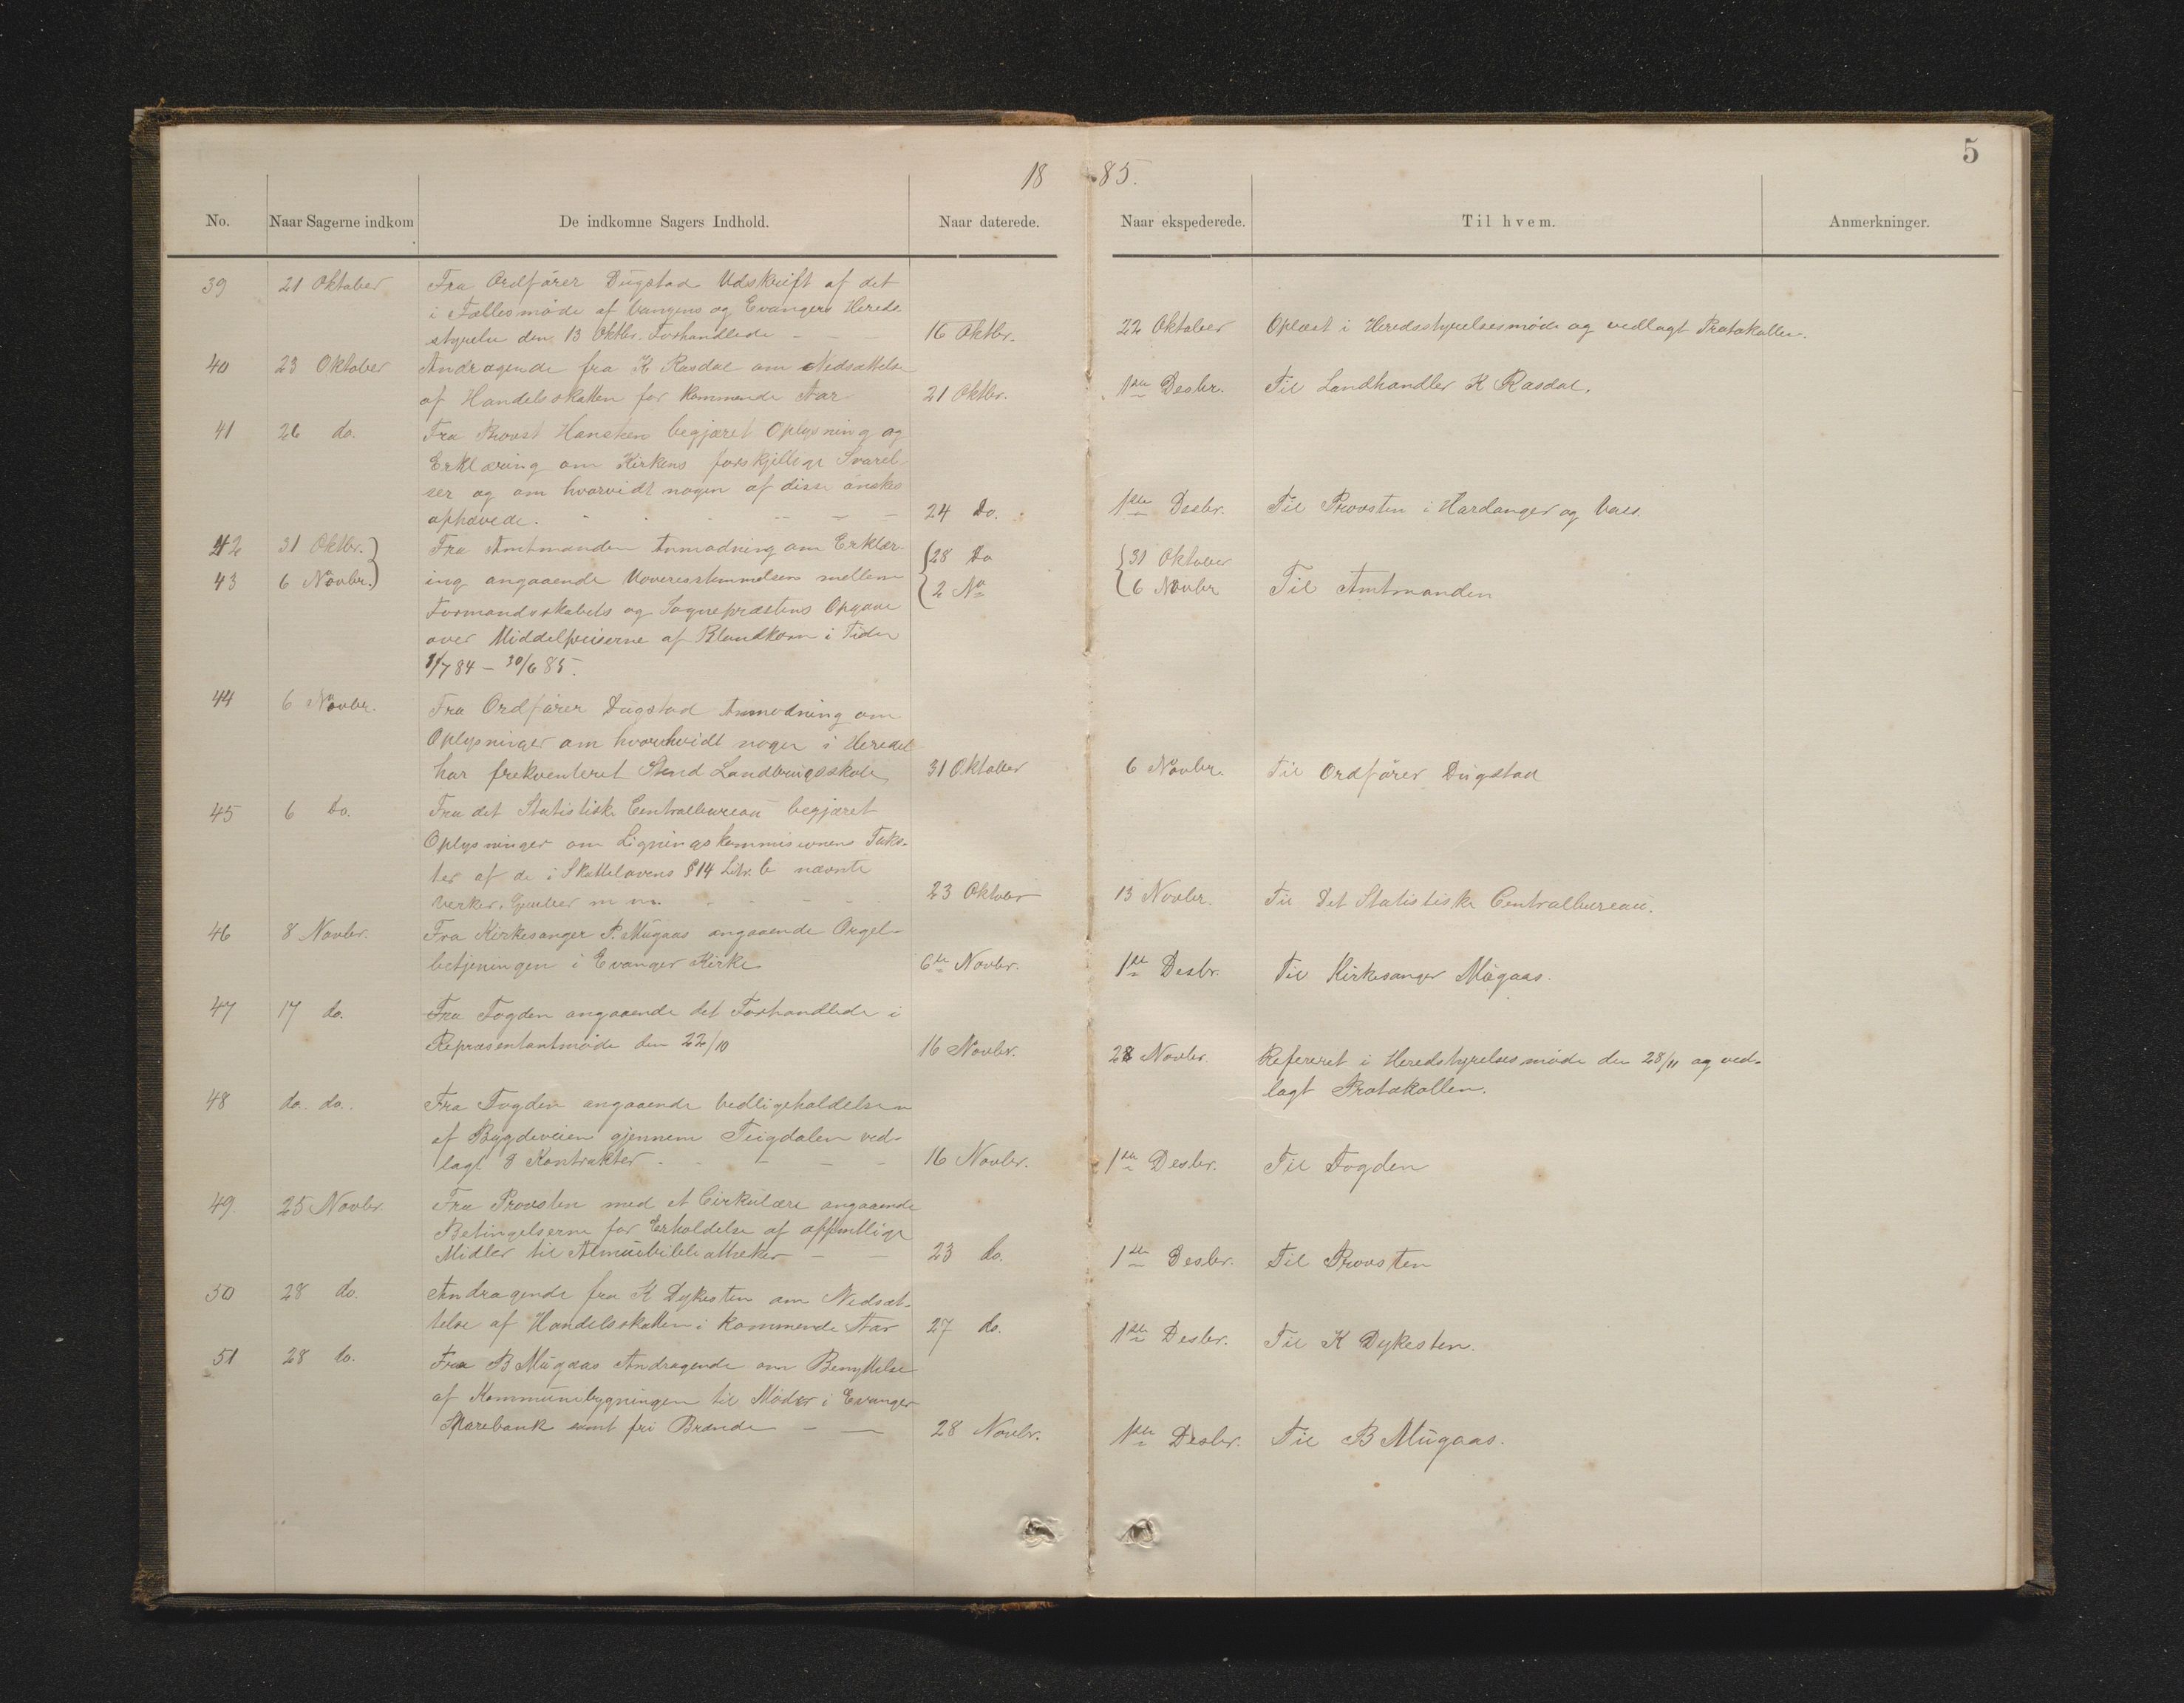 5
18 85.
No. Naar Sagerne indkom De indkomne Sagers Indhold. Naar daterede. Naar ekspederede. Til hvem. Anmerkninger.
39 21 Oktober Fra Ordfører Dugstad Udskrift af det
i Fællesmøde af Vangens og Evangers Hereds
styrelse den 13 Oktbr. Forhandlede — — 16 Oktbr. 22 Oktober Oplæst i Heredsstyrelsesmøde og vedlagt Protokollen.
40 23 Oktober Andragende fra K Rasdal om Nedsættelse
af Handelsskatten for kommende Aar 21 Oktbr. 1ste Desbr. Til Landhandler K Rasdal.
41 26 do. Fra Provst Hansteen begjæret Oplysning og
Erklæring om Kirkens forskjellige Svarel-
ser og om hvorvidt nogen af disse ønskes
ophævede. 24 Do. 1ste Desbr. Til Provsten i Hardanger og Voss.
42 31 Oktbr. Fra Amtmanden Anmodning om Erklær- 28 Do 31 Oktober
43 6 Novbr. ing angaaende Uoverensstemmelsen mellem 2 No 6 Novbr Til Amtmanden
Formandsskabets og Sognepræstens Opgave
over Middelpriserne af Blandkorn i Tiden
1/7 84 — 30/6 85.
44 6 Novbr. Fra Ordfører Dugstad Anmodning om
Oplysninger om hvorhvidt nogen i Heredet
har frekventeret Stend Landbrugsskole 31 Oktober 6 Novbr. Til Ordfører Dugstad
45 6 Do. Fra det Statistiske Centralbureau begjæret
Oplysninger om Ligningskommisionens Taks-
ter af de i Skattelovens § 14 Litr. b nævnte
Verker, Gruber m m. 23 Oktober 13 Novbr. Til Det Statistiske Centralbureau.
46 8 Novbr. Fra Kirkesanger P. Mugaas angaaende Orgel-
betjeningen i Evanger Kirke 6te Novbr. 1ste Desbr. Til Kirkesanger Mugaas.
47 17 do. Fra Fogden angaaende det Forhandlede i
Repræsentantmøde den 22/10 16 Novbr. 28 Novbr. Refereret i Heredstyrelsesmøde den 28/11 og ved-
lagt Protokollen.
48 do. do. Fra Fogden angaaende Vedligeholdelsen
af Bygdeveien gjennem Teigdalen ved-
lagt 8 Kontrakter. 16 Novbr. 1ste Desbr. Til Fogden
49. 25 Novbr. Fra Provsten med et Cirkulære angaaende
Betingelserne for Erholdelse af offentlige
Midler til Almuebibliotheker — — 23 do. 1ste Desbr. Til Provsten
50 28 do. Andragende fra K Dykesten om Nedsæt-
telse af Handelsskatten i kommende Aar 27 do. 1ste Desbr. Til K Dykesten.
51 28 do. Fra B Mugaas Andragende om Benyttelse
af Kommunebygningen til Møder i Evanger
Sparebank samt fri Brænde — — 28 Novbr. 1ste Desbr. Til B Mugaas.